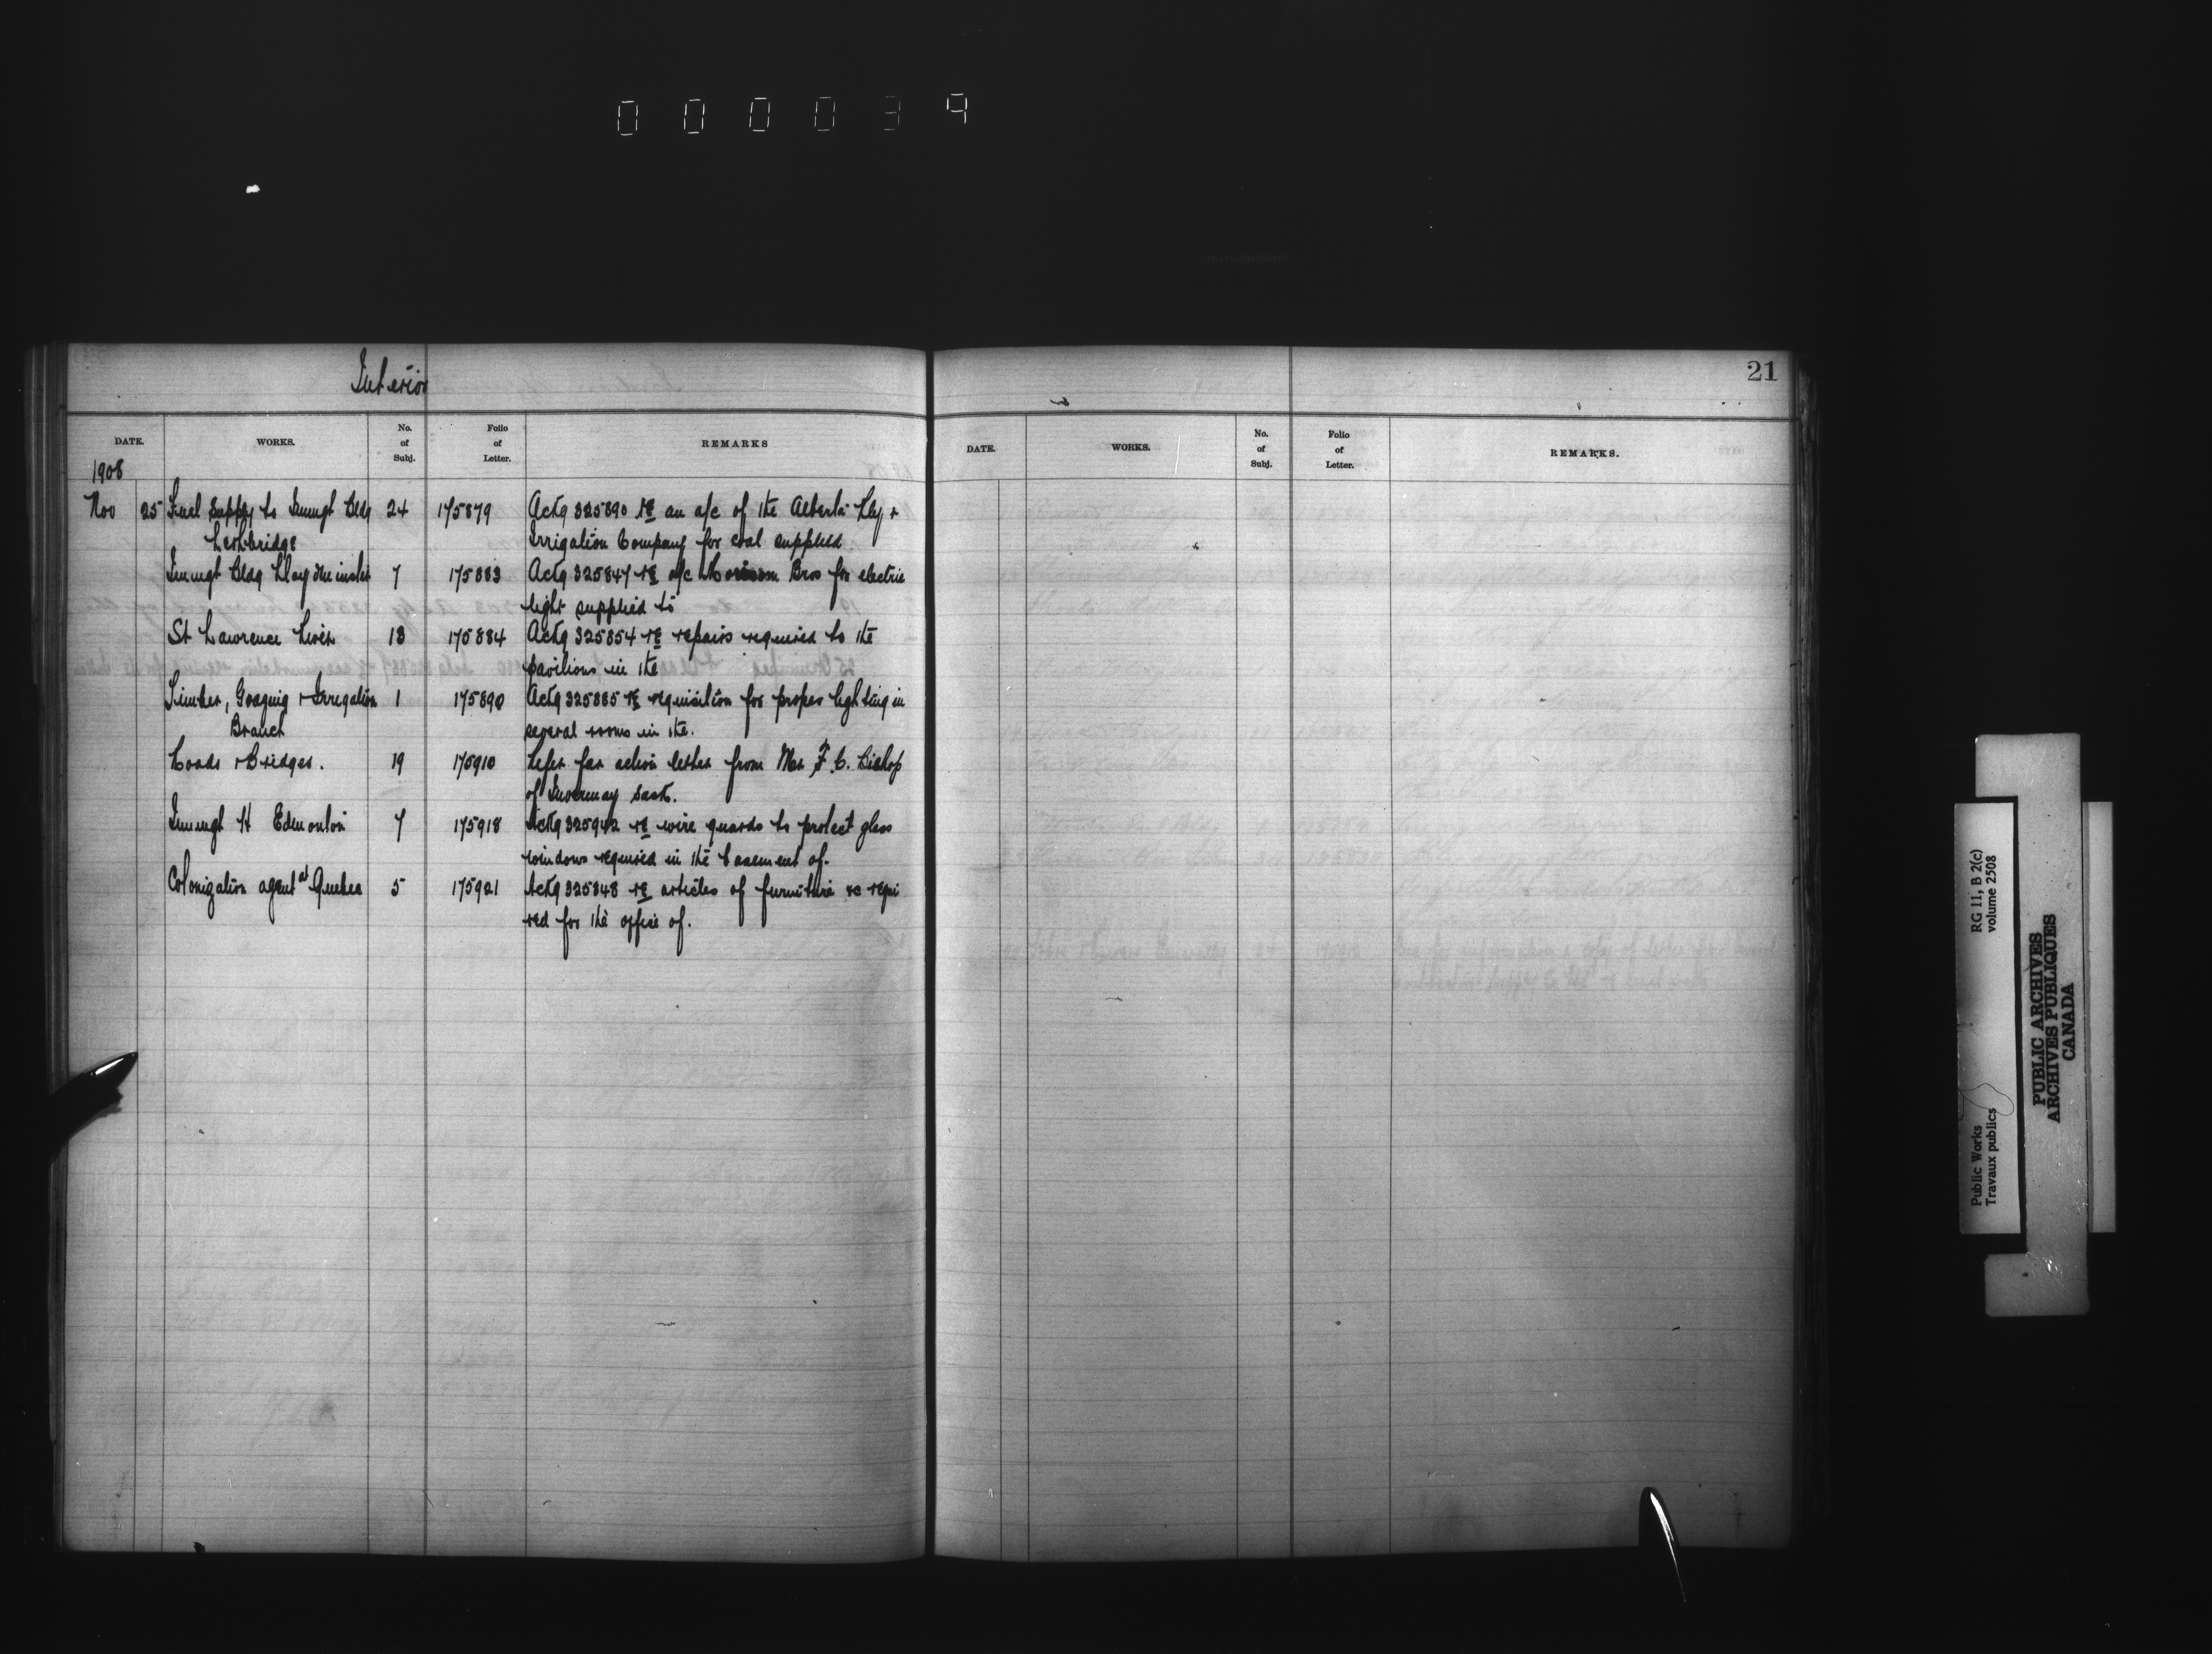 000039
Interior
21
DATE. WORKS. No. of Subj. Folio of Letter. REMARKS
DATE. WORKS. No. of Subj. Folio of Letter. REMARKS.
1908
Nov 25 Fuel supply to Immigt Bldg 24 175879 Ackg 325890 re an a/c of the Alberta Rly +
Lethbridge Irrigation Company for coal supplied
Immigt Bldg Lloydminister 7 175883 Ackg 325847 re a/c Bros for electric
light supplied to
St Lawrence River 13 175884 Ackg 325854 re repairs required to the
pavilions in the
Timber, Grazing + Irrigation 1 175890 Ackg 325885 re requisition for proper lighting in
Branch several rooms in the.
Roads + Bridges. 19 175910 Refer for action letter from Mr F. C. Bishop
of Invermay Sask.
Immigt H Edmonton 7 175918 Ackg 325942 re wire guards to protect glass
windows required in the basement of.
Colonization agent at Quebec 5 175921 Ackg 325848 re articles of furniture &c requi
red for the office of.
Public Works RG 11, B 2(c)
Travaux publics volume 2508
PUBLIC ARCHIVES
ARCHIVES PUBLIQUES
CANADA